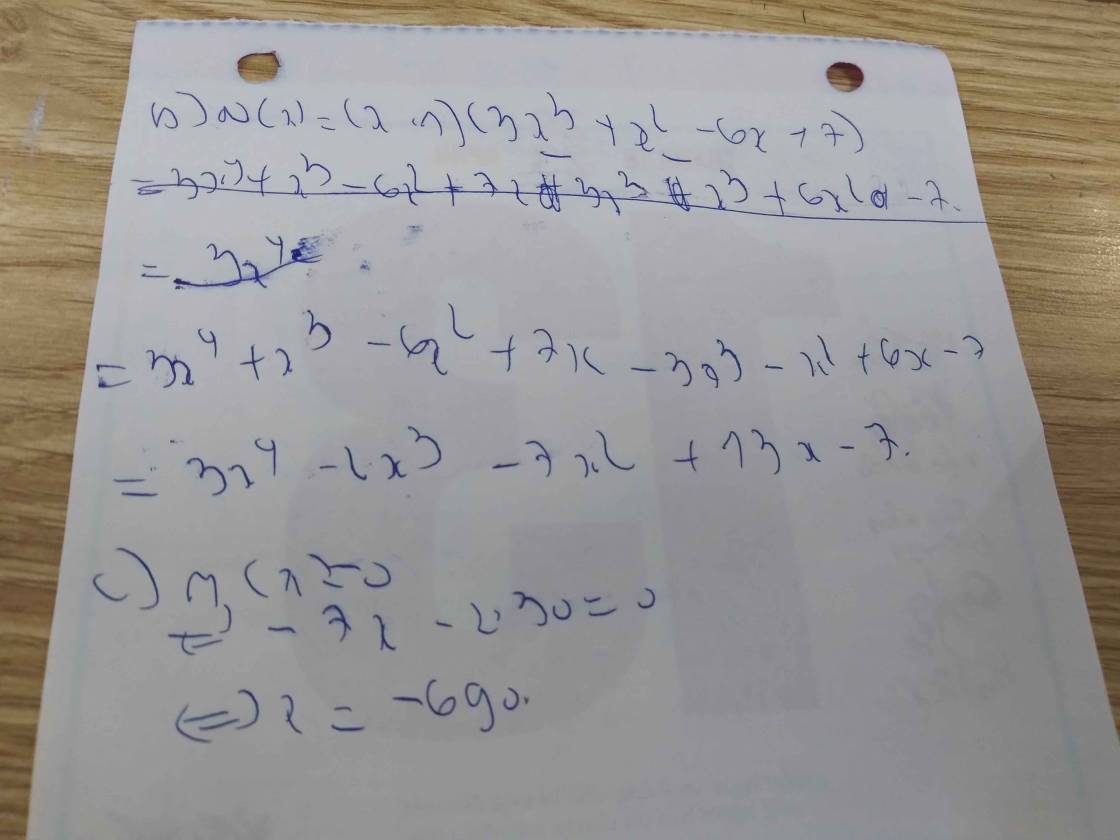 b) N(x) = (x - 1)(3x³ + x² - 6x + 7)
= 3x⁴ + x³ - 6x² + 7x 3x³ x³ + 6x² - 7.
= 3x⁴
= 3x⁴ + x³ - 6x² + 7x - 3x³ - x² + 6x - 7
= 3x⁴ - 2x³ - 7x² + 13x - 7.
c) M(x) = 0
⇔ - 7x - 230 = 0
⇔ x = -690.